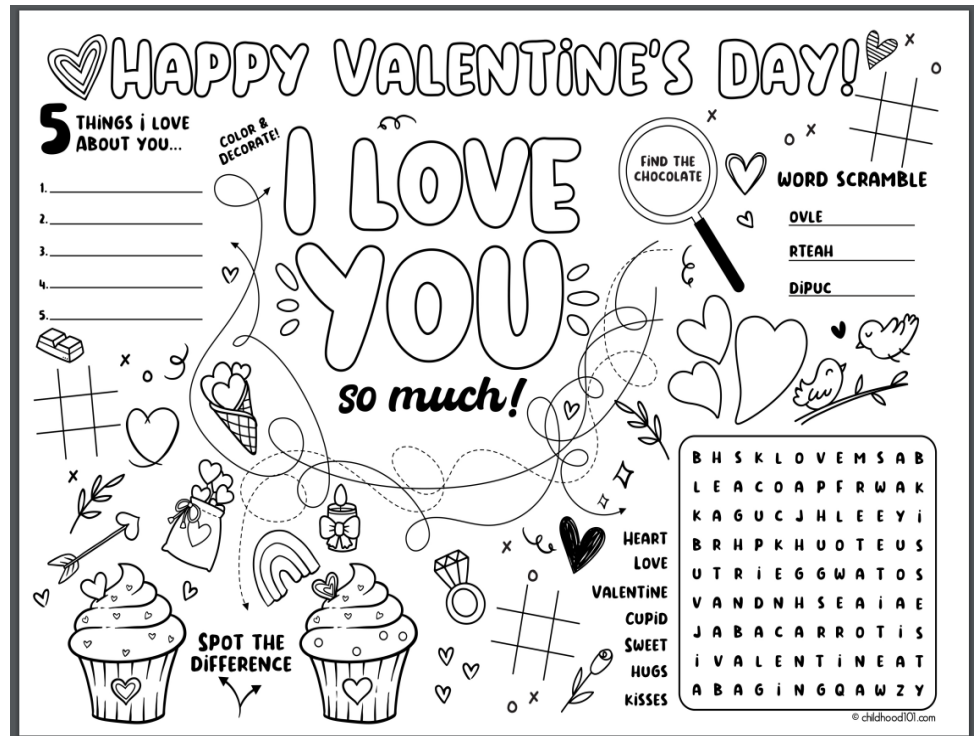 HAPPY VALENTiNE'S DAY!
5 THiNGS i LOVE
ABOUT YOU...
1.
2.
3.
4.
5.
COLOR &
DECORATE!
I LOVE
YOU
so much!
FiND THE
CHOCOLATE
WORD SCRAMBLE
OVLE
RTEAH
DiPUC
SPOT THE
DiFFERENCE
HEART
LOVE
VALENTiNE
CUPiD
SWEET
HUGS
KiSSES
B H S K L O V E M S A B
L E A C O A P F R W A K
K A G U C J H L E E Y i
B R H P K H U O T E U S
U T R i E G G W A T O S
V A N D N H S E A i A E
J A B A C A R R O T i S
i V A L E N T i N E A T
A B A G i N G Q A W Z Y
© childhood101.com